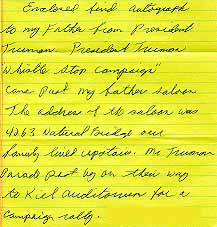 Enclosed find Autograph
to my Father from President
Truman President Truman
Whistle Stop Campaign"
Came Past my father Saloon
The address of the saloon was
4263 Natural Bridge our
family lived upstairs. Mr Truman
Parade past by on their way
to Kiel Auditorium for a
Campaign rally.